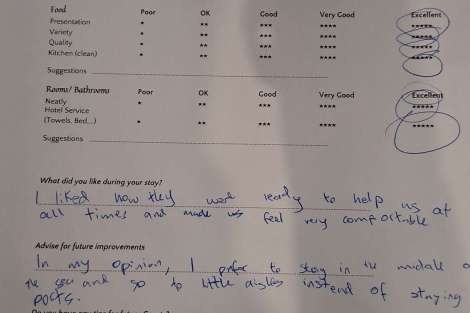 Food Poor OK Good Very Good Excellent
Presentation * ** *** **** *****
Variety * ** *** **** *****
Quality * ** *** **** *****
Kitchen (clean) * ** *** **** *****
Suggestions
Rooms/ Bathrooms Poor OK Good Very Good Excellent
Neatly * ** *** **** *****
Hotel Service
(Towels, Bed,...) * ** *** **** *****
Suggestions
What did you like during your stay?
I liked how they were ready to help us at
all times and made us feel very comfortable
Advise for future improvements
In my opinion, I prefer to stay in the middle o
the sea and go to little instead of staying
ports.